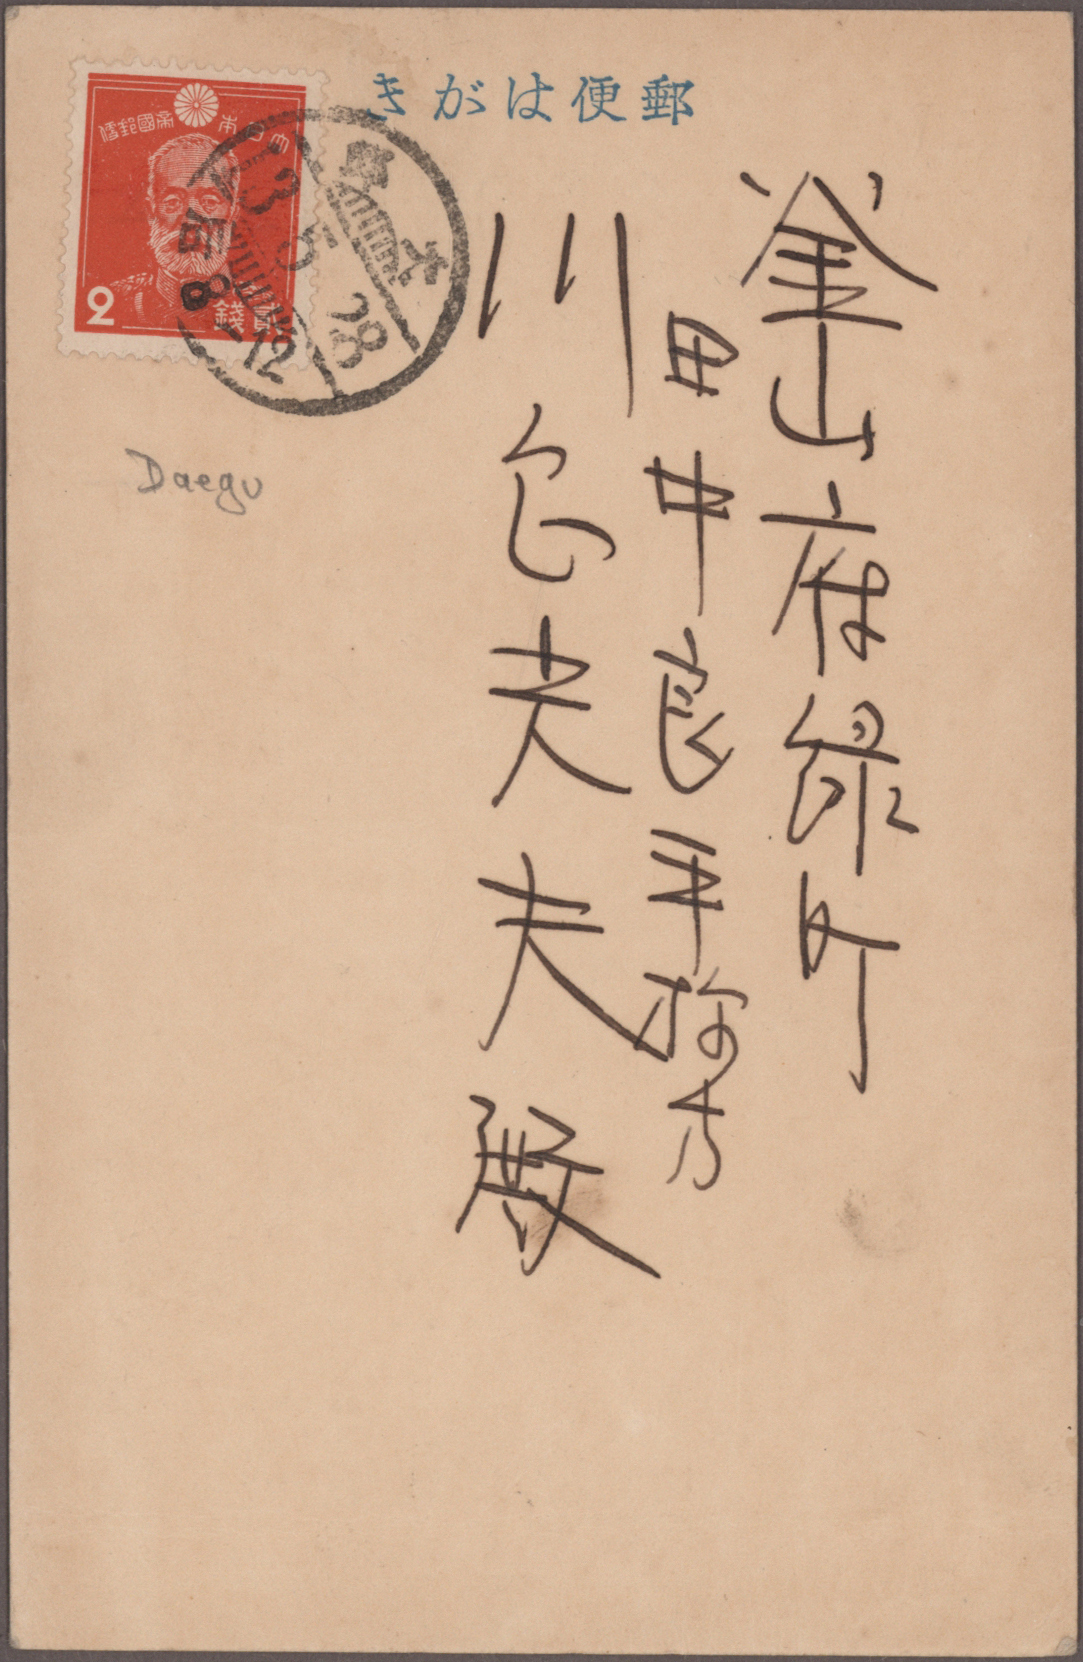 郵便はがき
大日本帝國郵便
2
貳錢
大邱
13 5 28
后 8-12
Daegu
釜山府緑町
田中良平様方
川邑夫夫殿